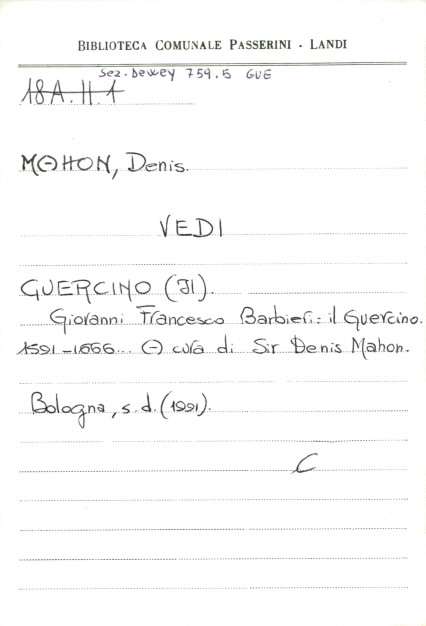 BIBLIOTECA COMUNALE PASSERINI - LANDI
Sez. Dewey 759.5 GUE
18A.H.1
MAHON, Denis.
VEDI
GUERCINO (Il).
Giovanni Francesco Barbieri: il Guercino.
1591-1666... A cura di Sir Denis Mahon.
Bologna, s.d. (1991).
C